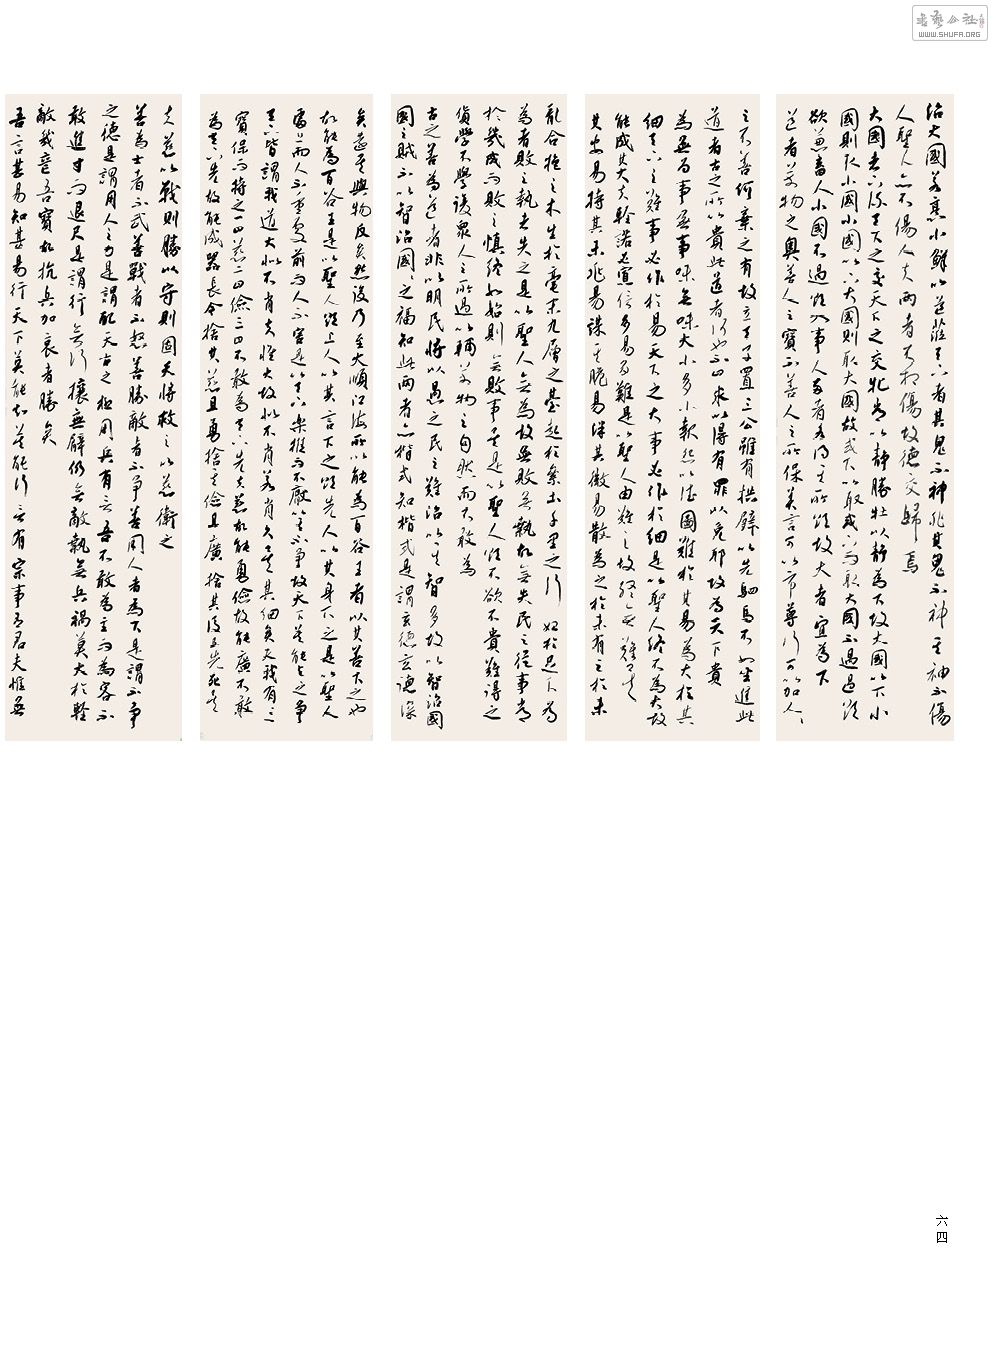 書藝公社
WWW.SHUFA.ORG
治大國若烹小鮮以道蒞天下者其鬼不神非其鬼不神其神不傷
人聖人亦不傷人夫兩者不相傷故德交歸焉
大國者下流天下之交天下之交牝常以靜勝牡以靜為下故大國以下小
國則取小國小國以下大國則取大國故或下以取或下而取大國不過
欲兼畜人小國不過欲入事人兩者各得其所欲故大者宜為下
道者萬物之奧善人之寶不善人之所保美言可以市尊行可以加人人
之不善何棄之有故立天子置三公雖有拱璧以先駟馬不如坐進此
道者古之所以貴此道者何也不曰求以得有罪以免耶故為天下貴
為無為事無事味無味大小多少報怨以德圖難於其易為大於其
細天下之難事必作於易天下之大事必作於細是以聖人終不為大故
能成其大夫輕諾必寡信多易多難是以聖人由難之故終無難矣
其安易持其未兆易謀其脆易泮其微易散為之於未有之於未
亂合抱之木生於毫末九層之臺起於累土千里之行始於足下為
為者敗之執者失之是以聖人無為故無敗無執故無失民之從事常
於幾成而敗之慎終如始則無敗事矣是以聖人欲不欲不貴難得之
貨學不學復眾人之所過以輔萬物之自然而不敢為
古之善為道者非以明民將以愚之民之難治以其智多故以智治國
國之賊不以智治國國之福知此兩者亦楷式知楷式是謂玄德玄德深
矣遠矣與物反矣然後乃至大順江海所以能為百谷王者以其善下之也
故能為百谷王是以聖人欲上人以其言下之欲先人以其身下之是以聖人
處上而人不重處前而人不害是以天下樂推而不厭以其不爭故天下莫能與之爭
天下皆謂我道大似不肖夫惟大故似不肖若肖久矣其細矣夫我有三
寶保而持之一曰慈二曰儉三曰不敢為天下先夫慈故能勇儉故能廣不敢
為天下先故能成器長今捨其慈且勇捨其儉且廣捨其後且先死矣
夫慈以戰則勝以守則固天將救之以慈衛之
善為士者不武善戰者不怒善勝敵者不爭善用人者為下是謂不爭
之德是謂用人之力是謂配天古之極用兵有言吾不敢為主而為客不
敢進寸而退尺是謂行無行攘無臂仍無敵執無兵禍莫大於輕
敵幾喪吾寶故抗兵加哀者勝矣
吾言甚易知甚易行天下莫能知莫能行言有宗事有君夫惟無
六四